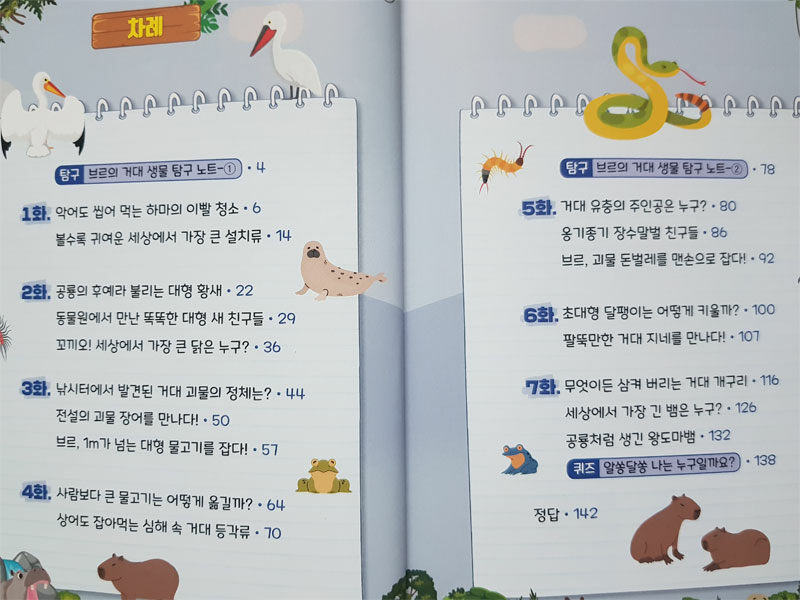 차례
탐구 브르의 거대 생물 탐구 노트-① • 4
1화. 악어도 씹어 먹는 하마의 이빨 청소 • 6
볼수록 귀여운 세상에서 가장 큰 설치류 • 14
2화. 공룡의 후예라 불리는 대형 황새 • 22
동물원에서 만난 똑똑한 대형 새 친구들 • 29
꼬끼오! 세상에서 가장 큰 닭은 누구? • 36
3화. 낚시터에서 발견된 거대 괴물의 정체는? • 44
전설의 괴물 장어를 만나다! • 50
브르, 1m가 넘는 대형 물고기를 잡다! • 57
4화. 사람보다 큰 물고기는 어떻게 옮길까? • 64
상어도 잡아먹는 심해 속 거대 등각류 • 70
탐구 브르의 거대 생물 탐구 노트-② • 78
5화. 거대 유충의 주인공은 누구? • 80
옹기종기 장수말벌 친구들 • 86
브르, 괴물 돈벌레를 맨손으로 잡다! • 92
6화. 초대형 달팽이는 어떻게 키울까? • 100
팔뚝만한 거대 지네를 만나다! • 107
7화. 무엇이든 삼켜 버리는 거대 개구리 • 116
세상에서 가장 긴 뱀은 누구? • 126
공룡처럼 생긴 왕도마뱀 • 132
퀴즈 알쏭달쏭 나는 누구일까요? • 138
정답 • 142